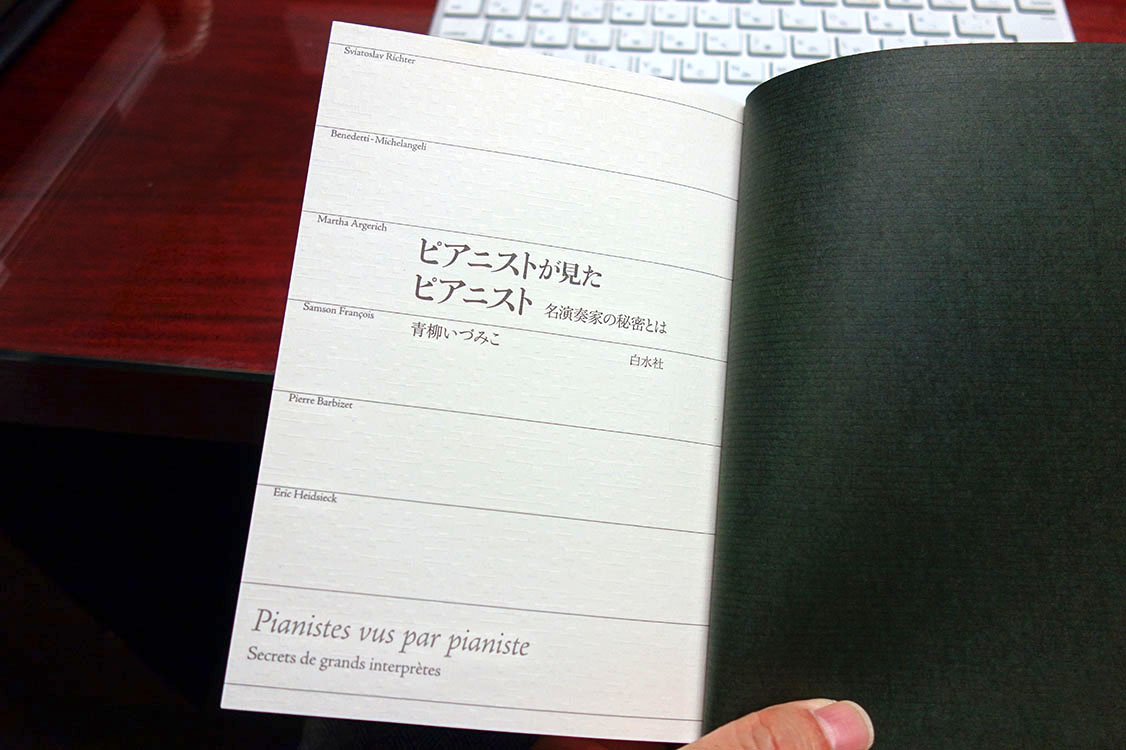 Sviatoslav Richter
Benedetti-Michelangeli
Martha Argerich
ピアニストが見た
ピアニスト 名演奏家の秘密とは
Samson François
青柳いづみこ
白水社
Pierre Barbizet
Eric Heidsieck
Pianistes vus par pianiste
Secrets de grands interprètes